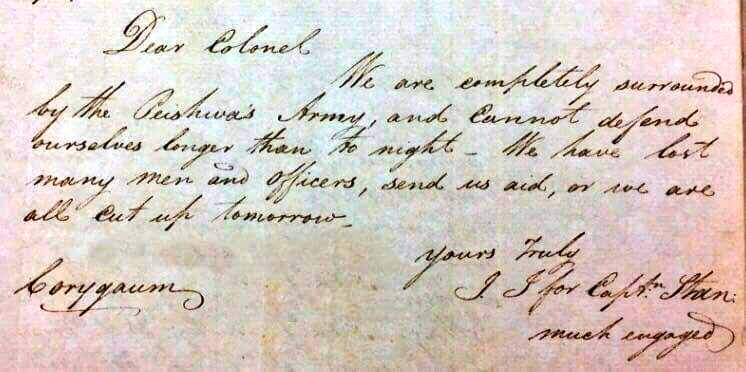 Dear Colonel
We are completely surrounded
by the Peishwa's Army, and Cannot defend
ourselves longer than to night - We have lost
many men and officers, send us aid, or we are
all cut up tomorrow -
yours Truly
Corygaum J. J for Captn. Stan:
much engaged